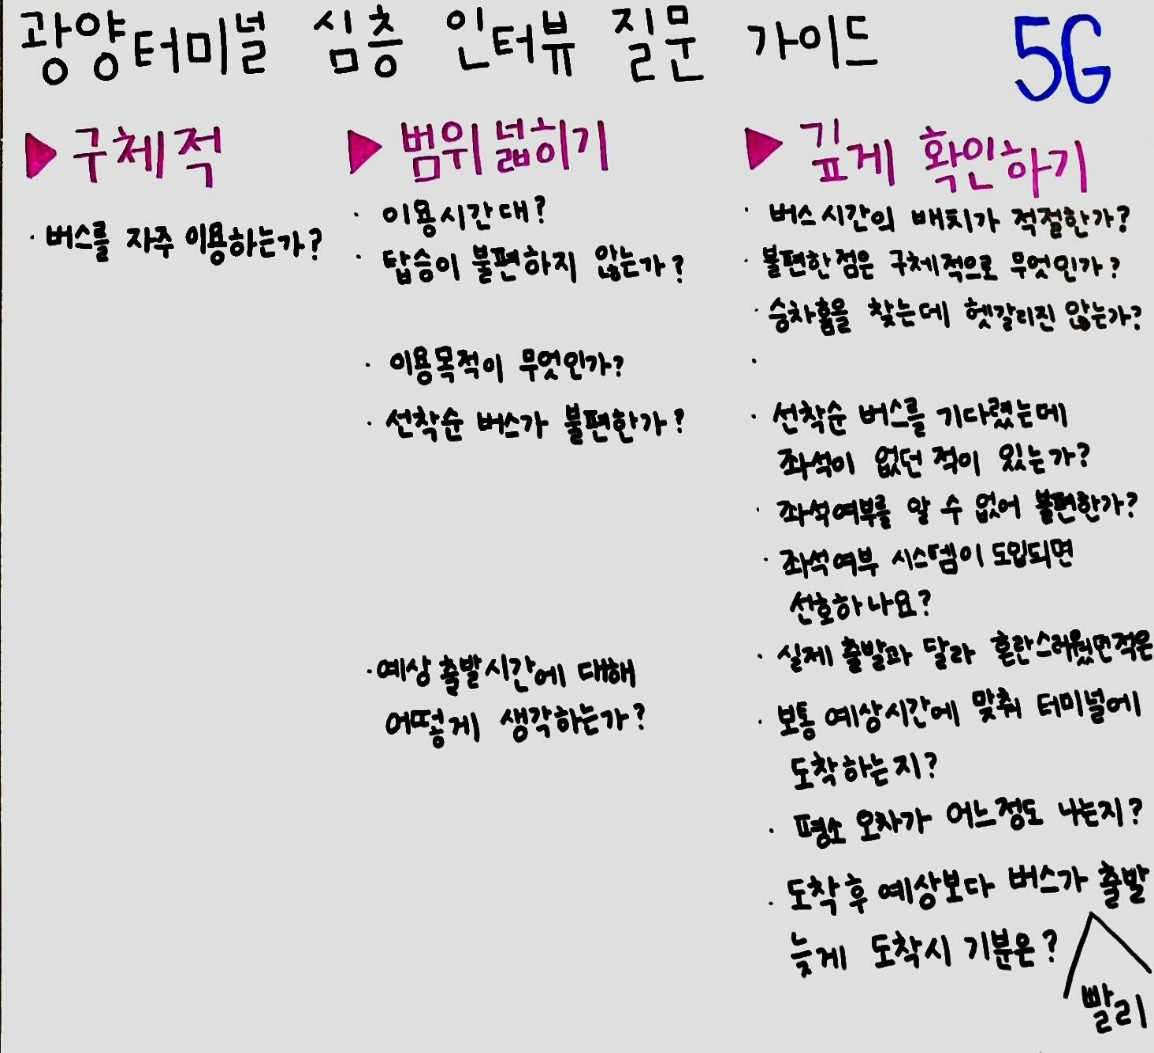 광양터미널 심층 인터뷰 질문 가이드 5G
▶ 구체적
· 버스를 자주 이용하는가?
▶ 범위넓히기
· 이용시간대?
· 탑승이 불편하지 않는가?
· 이용목적이 무엇인가?
· 선착순 버스가 불편한가?
· 예상 출발시간에 대해
어떻게 생각하는가?
▶ 깊게 확인하기
· 버스시간의 배치가 적절한가?
· 불편한점은 구체적으로 무엇인가?
· 승차홈을 찾는데 헷갈리진 않는가?
·
· 선착순 버스를 기다렸는데
좌석이 없던 적이 있는가?
· 좌석여부를 알 수 없어 불편한가?
· 좌석여부 시스템이 도입되면
선호하나요?
· 실제 출발과 달라 혼란스러웠던적은
· 보통 예상시간에 맞춰 터미널에
도착하는지?
· 평소 오차가 어느정도 나는지?
· 도착후 예상보다 버스가 출발
늦게 도착시 기분은?
빨리